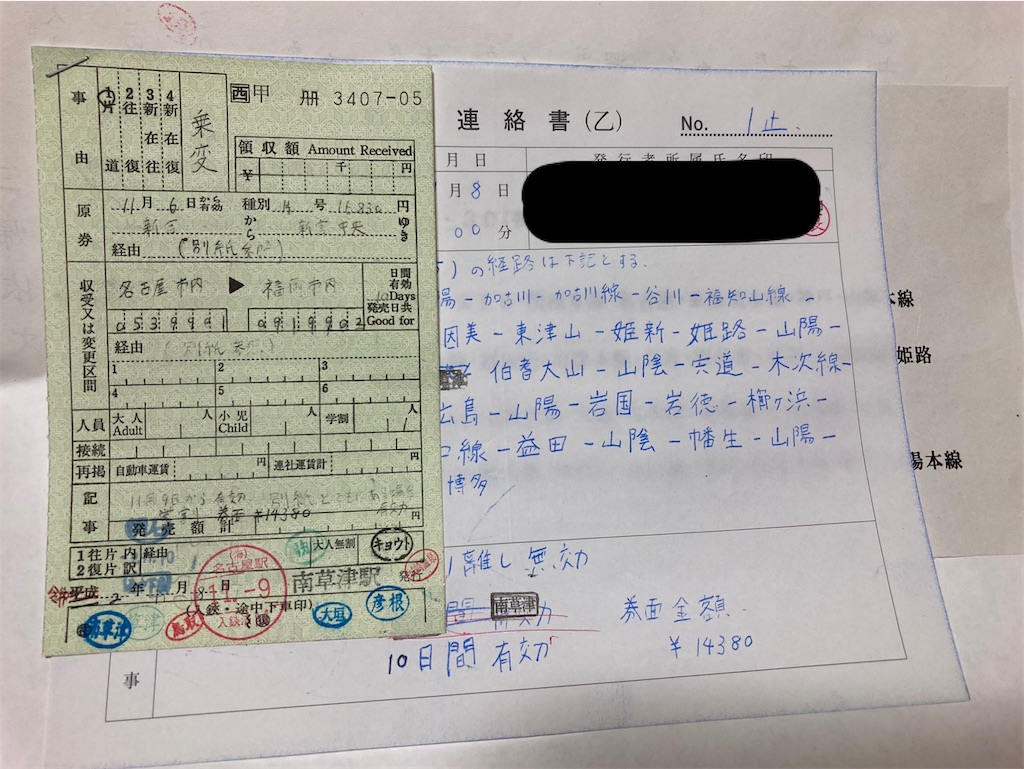 事由
1片道
2往復
3新在往
4新在復
乗変
西甲 冊 3407-05
領収額 Amount Received
¥ 千 円
原券
11月6日から有効 種別 号 15,830円
から 新宮中央 ゆき
経由 (別紙参照)
収受又は変更区間
名古屋市内 ▶ 福岡市内
日間有効 10Days
発売日共 Good for
経由 (別紙参照)
1 2 3
4 5 6
人員 大人 Adult 人 小児 Child 人 学割 1人
接続
再掲 自動車運賃 円 連社運賃計 円
記事
11月9日から有効 別紙とともに
有効
学割 券面 ¥14380
発売額計
1往片 2復片 内訳 経由
大人無割
キョウト
平成 2年 11月 8日
南草津駅 発行
(入鉄・途中下車印)
名古屋駅
11.-9
入鉄
南草津
草津
鳥取
大垣
彦根
連絡書(乙) No. 1止.
月日 発行者所属氏名印
月 8 日
00 分
)の経路は下記とする.
陽-加古川-加古川線-谷川-福知山線-
因美-東津山-姫新-姫路-山陽-
伯耆大山-山陰-宍道-木次線-
広島-山陽-岩国-岩徳-櫛ヶ浜-
口線-益田-山陰-幡生-山陽-
博多
離し無効
間 有効 南草津
券面金額
10日間 有効
¥14380
事
本線
姫路
陽本線